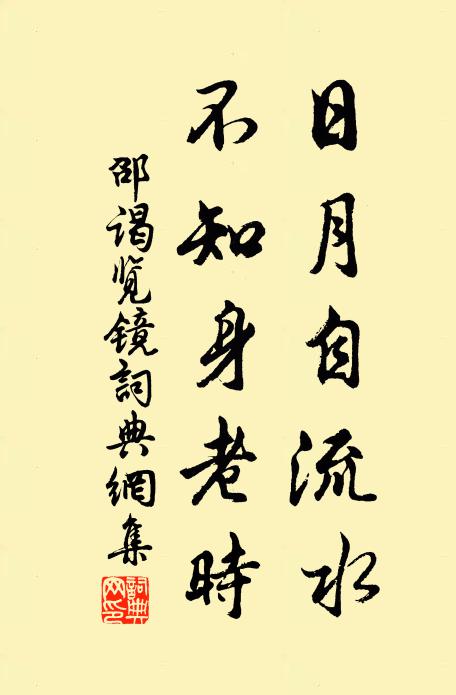 日月自流水
不知身老時
邵谒览镜詞典網集
詞典網印